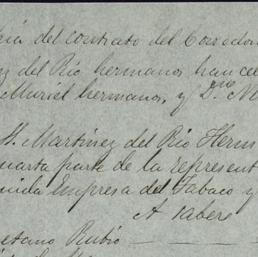 del contrato del Corredor
del Rio hermanos han cel
Muriel hermanos, y D.
H. Martinez del Rio Herm
uarta parte de la represent
uida Empresa del Tabaco y
A saber
etano Rubio